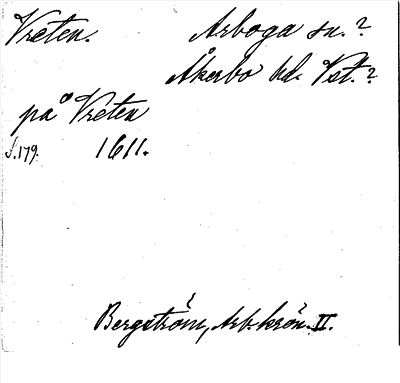 Vreten. Arboga sn.?
Åkerbo hd. Vst.?
på Vreten
s. 179. 1611.
Bergström, Arb. krön. II.